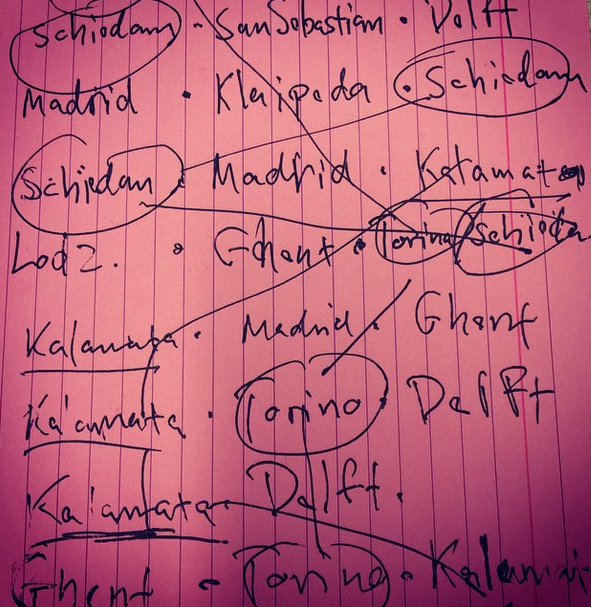 Schiedam · San Sebastian · Delft
Madrid · Klaipeda · Schiedam
Schiedam · Madrid · Katamata
Lodz. · Ghent · Torino/Schieda
Kalamata · Madrid · Ghent
Ka'amata · Torino · Delft
Ka'amata · Delft.
Ghent - Torino · Kalama